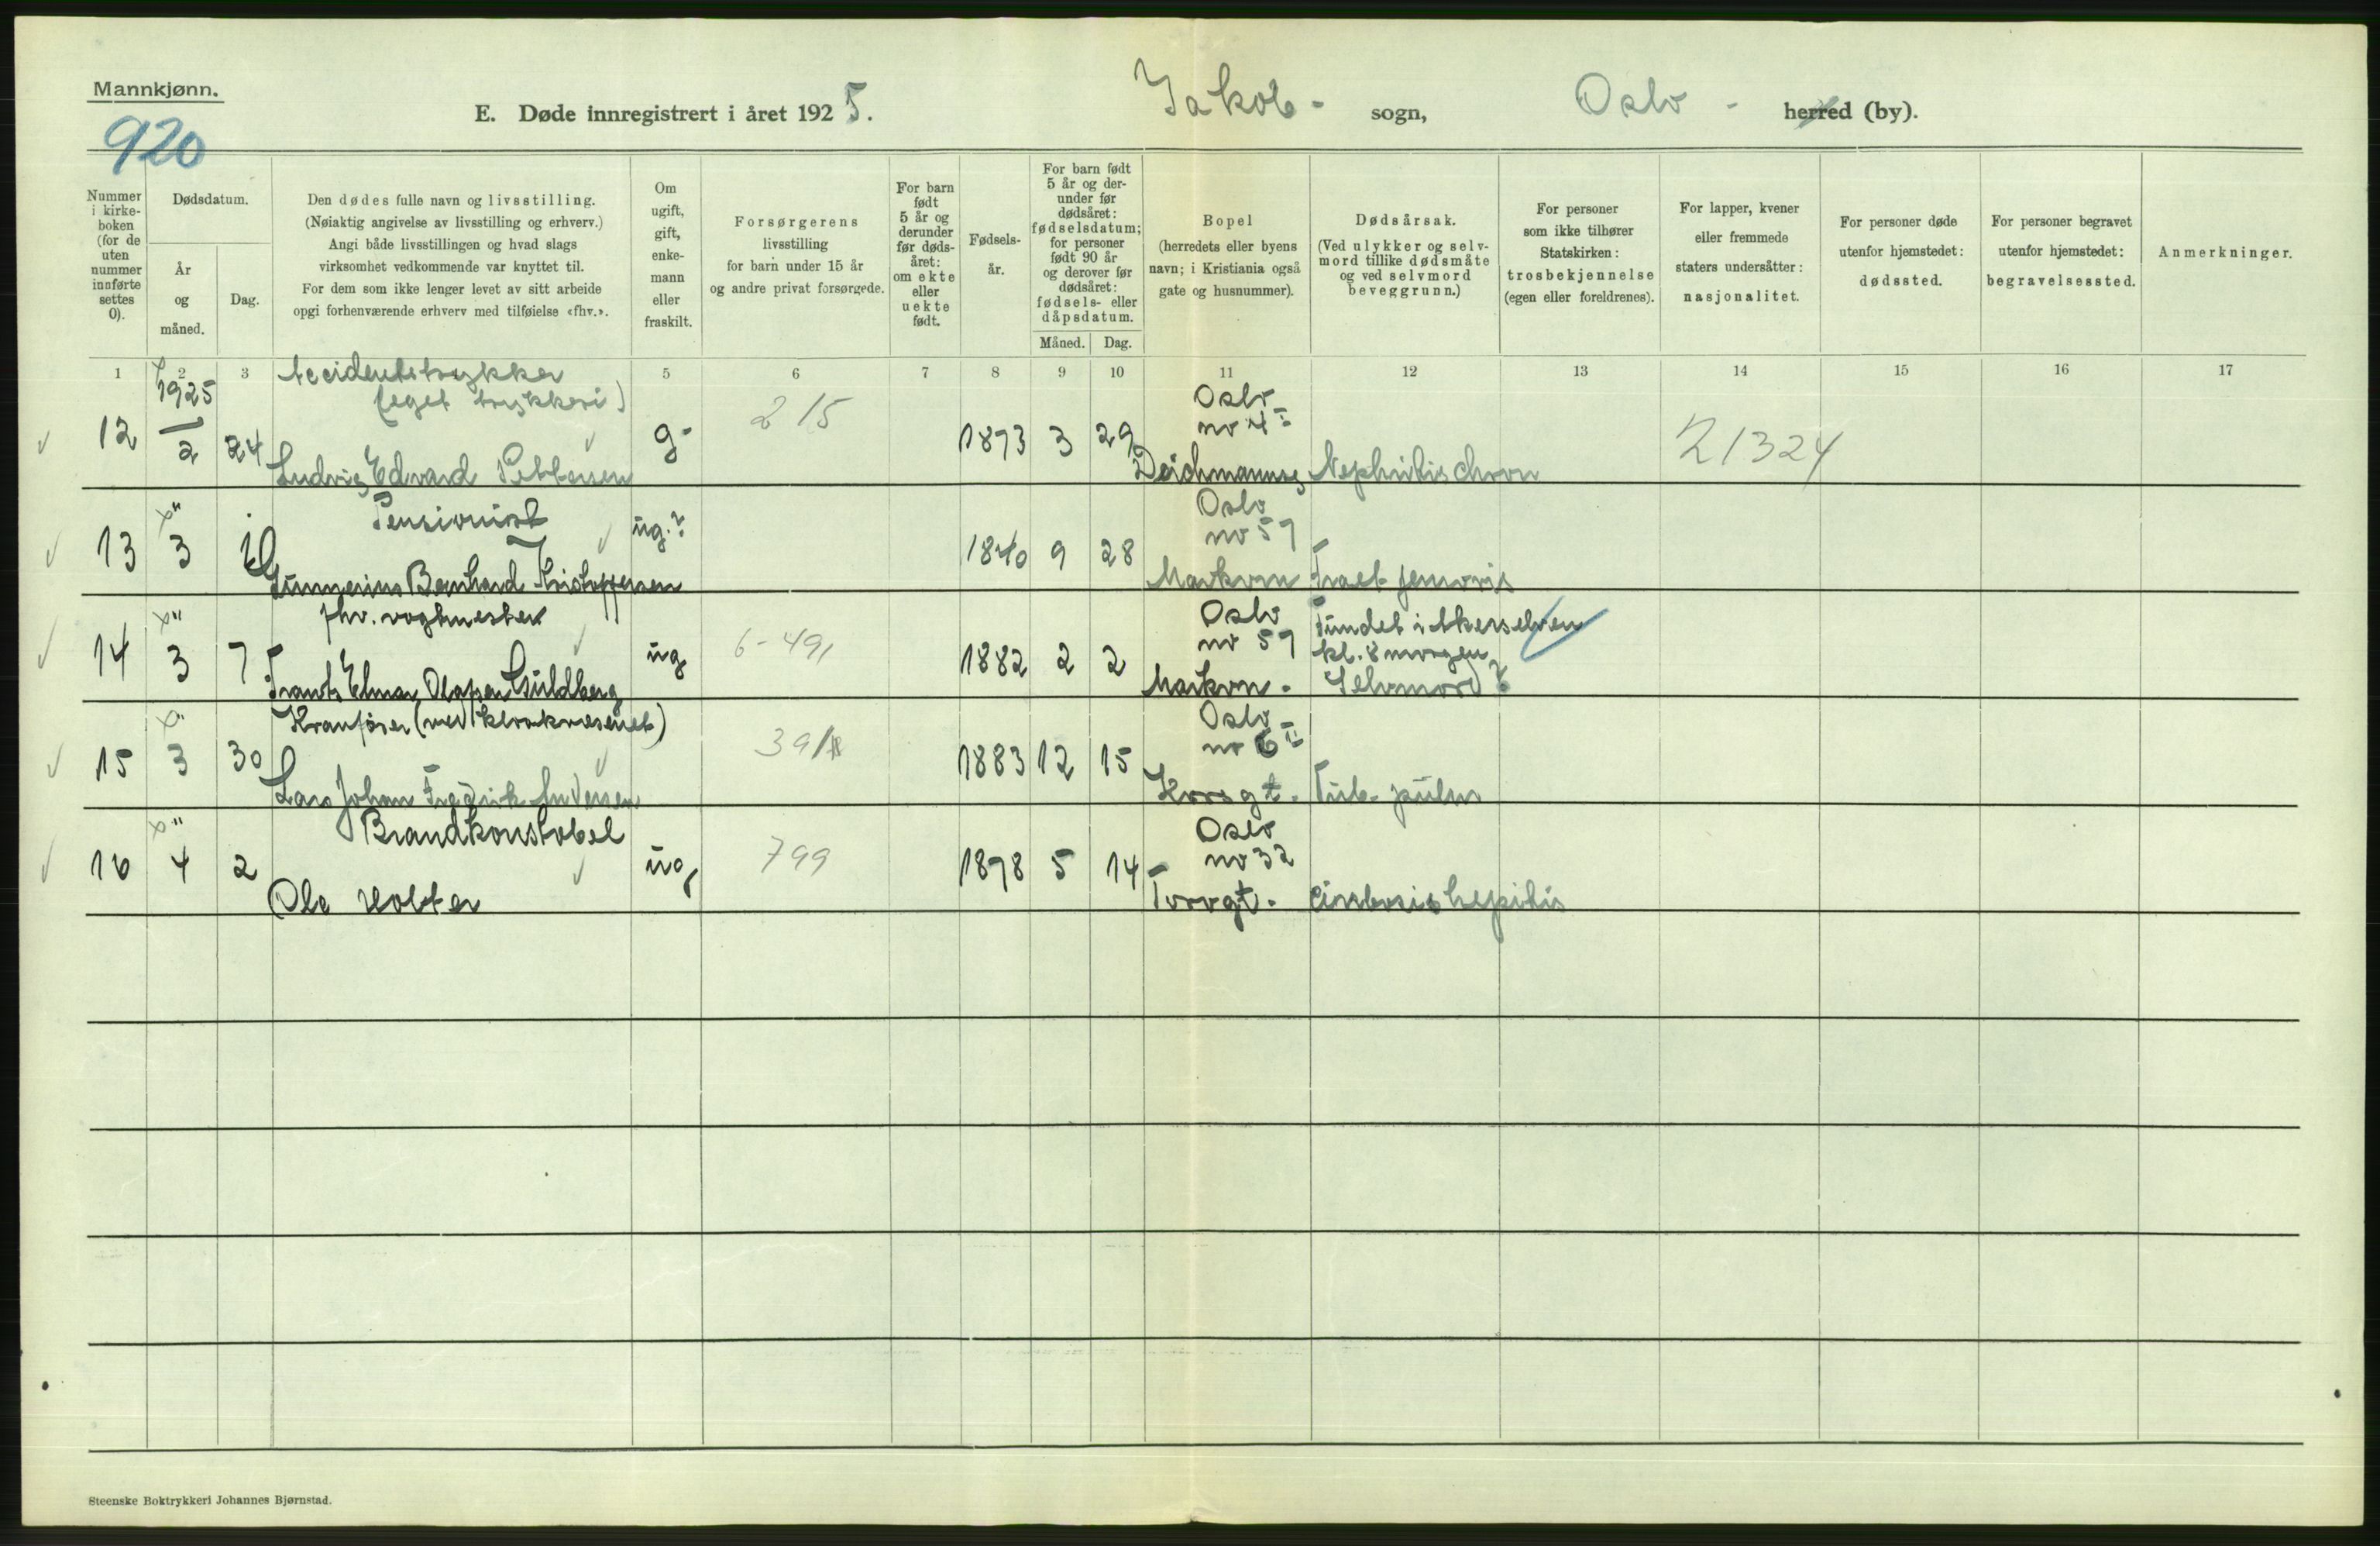 Mannkjønn.
920
E. Døde innregistrert i året 1925.
Jakob - sogn,
Oslo - herred (by).
Nummer i kirke-boken (for de uten nummer innførte settes 0).
Dødsdatum.
År og måned.
Dag.
Den dødes fulle navn og livsstilling.
(Nøiaktig angivelse av livsstilling og erhverv.)
Angi både livsstillingen og hvad slags
virksomhet vedkommende var knyttet til.
For dem som ikke lenger levet av sitt arbeide
opgi forhenværende erhverv med tilføielse «fhv.».
Om ugift, gift, enke-mann eller fraskilt.
Forsørgerens
livsstilling
for barn under 15 år
og andre privat forsørgede.
For barn født 5 år og derunder før døds-året: om ekte eller uekte født.
Fødsels-år.
For barn født 5 år og der-under før dødsåret: fødselsdatum; for personer født 90 år og derover før dødsåret: fødsels- eller dåpsdatum.
Måned. Dag.
Bopel
(herredets eller byens
navn; i Kristiania også
gate og husnummer).
Dødsårsak.
(Ved ulykker og selv-
mord tillike dødsmåte
og ved selvmord
beveggrunn.)
For personer
som ikke tilhører
Statskirken:
trosbekjennelse
(egen eller foreldrenes).
For lapper, kvener
eller fremmede
staters undersåtter:
nasjonalitet.
For personer døde
utenfor hjemstedet:
dødssted.
For personer begravet
utenfor hjemstedet:
begravelsessted.
Anmerkninger.
1 2 3 5 6 7 8 9 10 11 12 13 14 15 16 17
Accidentstrykker
(eget trykkeri)
12 1925 2 24 Ludvig Edvard Pettersen g. 215 1873 3 29 Oslo no 4 Deichmannsg Nephritis chron 21324
Pensionist
13 " 3 Gunnerius Bernhard Kristoffersen ug.? 1840 9 28 Oslo no 59 Markvn Fract. femoris
fhv. vogtmester
14 " 3 7 Frantz Elmar Olafsen Guldberg ug 6-491 1882 2 2 Oslo no 59 Markvn. Fundet i Akerselven
kl. 8 morgen
Selvmord?
Kranfører (ved kloakvesenet)
15 " 3 30 Lars Johan Fredrik Andersen 391 1883 12 15 Oslo no 6 Korsgt. Tub. pulm
Brandkonstabel
16 " 4 2 Ole Holter ug 799 1878 5 14 Oslo no 32 Torvgt. Cirrhosis hepitis
Steenske Boktrykkeri Johannes Bjørnstad.